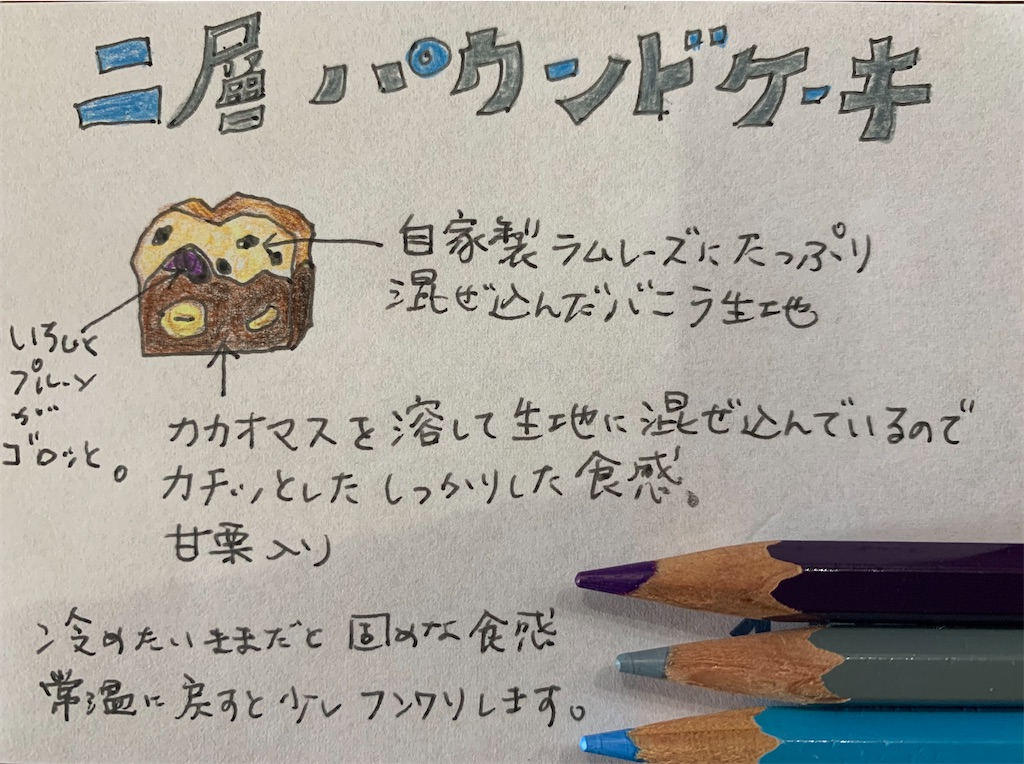 二層パウンドケーキ
自家製ラムレーズンたっぷり
混ぜ込んだバニラ生地
いちじくと
プルーン
が
ゴロッと。
カカオマスを溶して生地に混ぜ込んでいるので
カチッとしたしっかりした食感。
甘栗入り
冷めたいままだと固めな食感
常温に戻すと少しフンワリします。